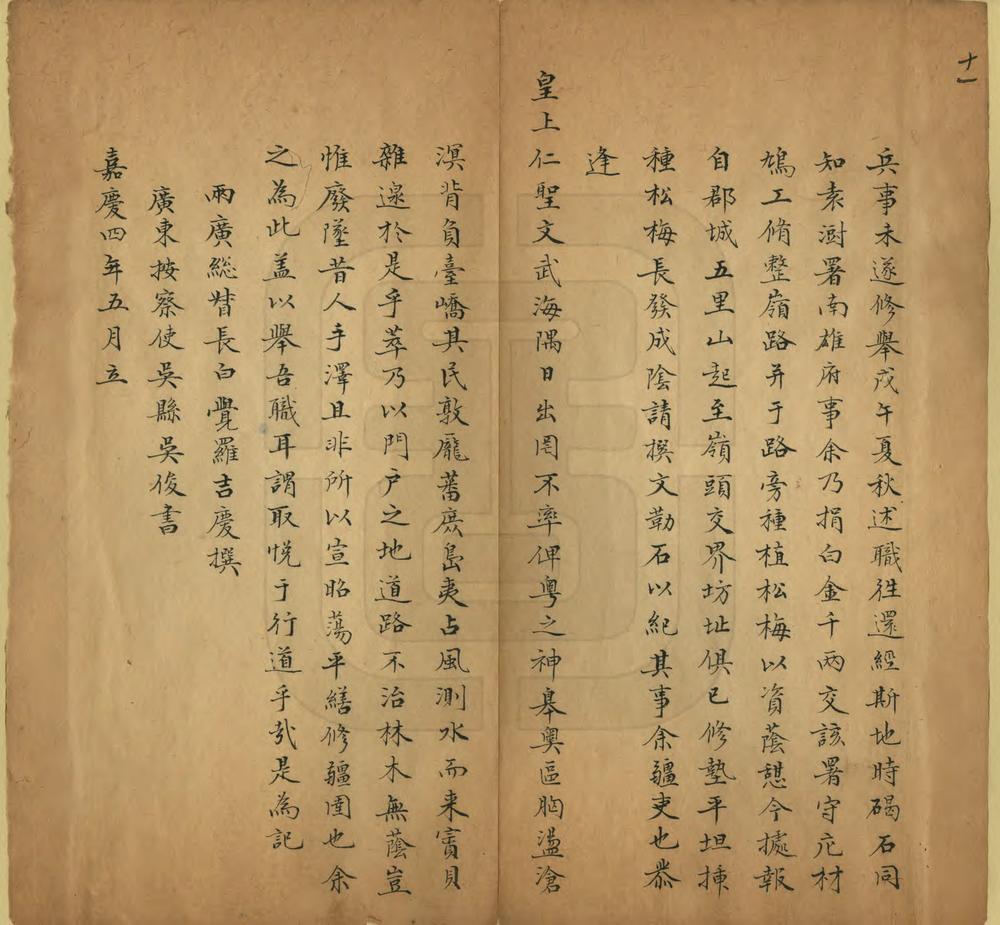 十一
兵事未遂修舉戊午夏秋述職往還經斯地時碣石同
知袁澍署南雄府事余乃捐白金千兩交該署守庀材
鳩工脩整嶺路并于路旁種植松梅以資蔭憇今據報
自郡城五里山起至嶺頭交界坊址俱已修墊平坦揷
種松梅長發成陰請撰文勒石以紀其事余疆吏也恭
逢
皇上仁聖文武海隅日出罔不率俾粵之神臯奧區胸盪滄
溟背負臺嶠其民敦龐蕃庶島夷占風測水而来賓貝
雜遝於是乎萃乃以門户之地道路不治林木無蔭豈
惟廢墜昔人手澤且非所以宣昭蕩平繕修疆圉也余
之為此盖以舉吾職耳謂取悦于行道乎哉是為記
兩廣総督長白覺羅吉慶撰
廣東按察使吳縣吳俊書
嘉慶四年五月立